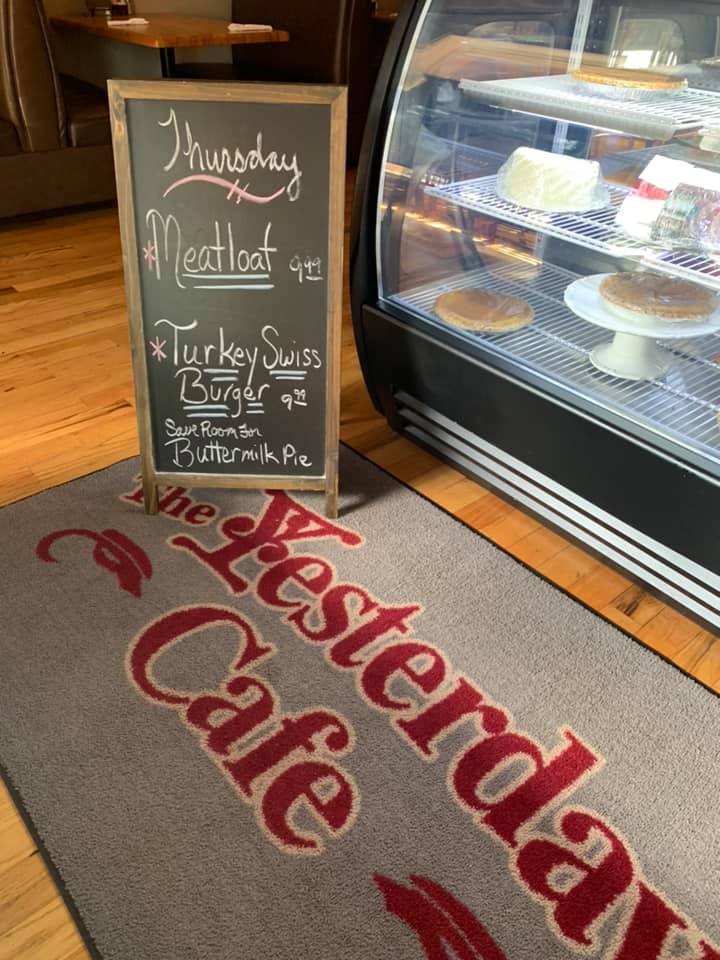 Thursday
*Meatloaf 9.99
*Turkey Swiss
Burger 9.99
Save Room For
Buttermilk Pie
The Yesterday
Cafe